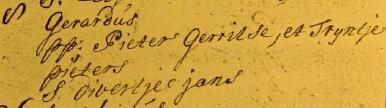 Gerardus
pp: Pieter Gerritse, et Tryntje
pieters
S. divertjee jans